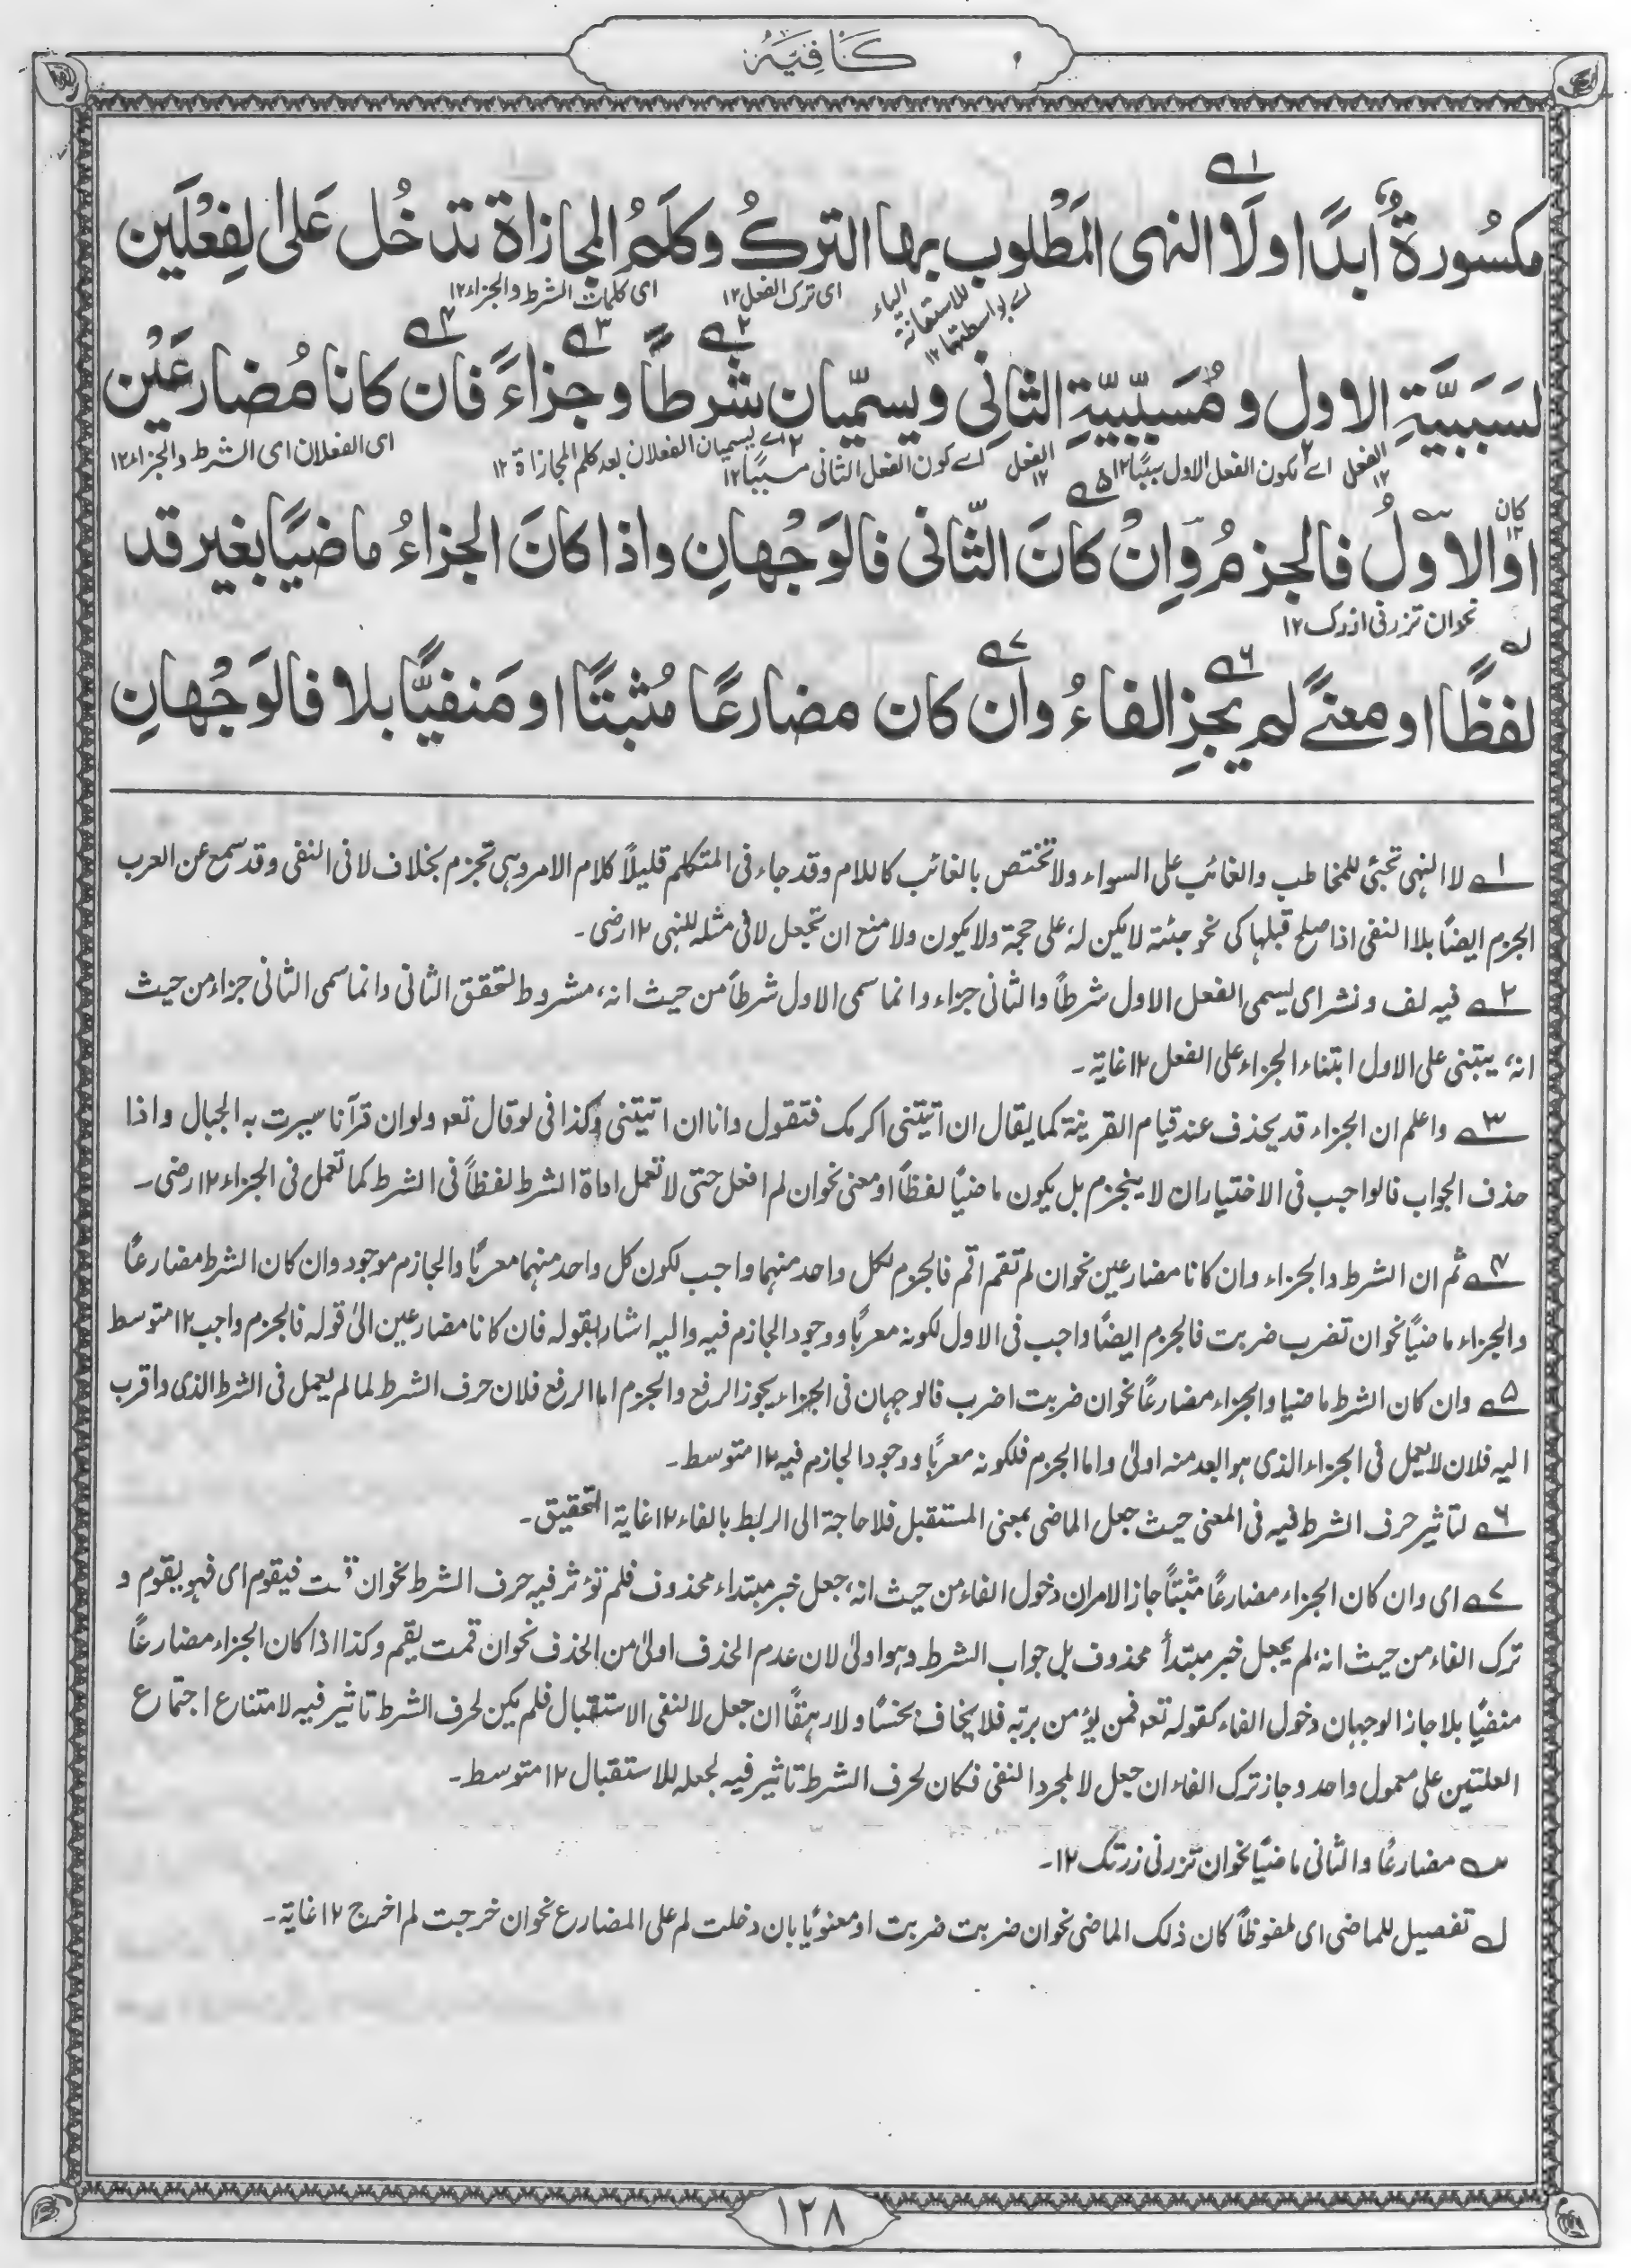 كَافِيَة
مكسُورةٌ أبدًا اولَا النهى المَطْلوب بها التركُ وكلَمُ المجازاة تدخُل عَلى الفِعْلَين
اى ترك الفعل ١٢
اى كلمات الشرط والجزاء ١٢
لسَبَبيَّةِ الاول و مُسَبَّبيّةِ الثانِى ويسمّيان شرطاً وجزاءً فان كانا مُضارعَيْن
الفعل ١٢
اے لكون الفعل الاول سببًا ١٢
الفعل ١٢
اے كون الفعل الثانى مسببًا ١٢
اے يسميان الفعلان بعد كلم المجازاة ١٢
اى الفعلان اى الشرط والجزاء ١٢
كان
اوالاوّلُ فالجزمُ وَاِنْ كانَ الثّانى فالوَجْهانِ واذا كانَ الجزاءُ ماضيًا بغير قد
نحو ان تزرنى ازرك ١٢
لفظًا او معنًے لم يجزِ الفاءُ وان كان مضارعًا مُثبتًا او مَنفيًّا بلا فالوَجْهانِ
١ے لا النهى تجئى للمخاطب والغائب على السواء ولا تختص بالغائب كاللام وقد جاء فى المتكلم قليلًا كلام الامر وهى تجزم بخلاف لا فى النفى وقد سمع عن العرب
الجزم ايضًا بلا النفى اذا صلح قبلها كى نحو جئته لا يكن لهٗ على حجة ولا يكون ولا منع ان تجعل لا فى مثله للنهى ١٢ رضى۔
٢ے فيه لف ونشر اى يسمى الفعل الاول شرطاً والثانى جزاء وانما سمى الاول شرطاً من حيث انهٗ مشروط لتحقق الثانى وانما سمى الثانى جزاء من حيث
انهٗ يبتنى على الاول ابتناء الجزاء على الفعل ١٢ غاية۔
٣ے واعلم ان الجزاء قد يحذف عند قيام القرينة كما يقال ان اتيتنى اكرمك فتقول وانا ان اتيتنى وكذا فى لو قال تعـ ولو ان قرآنا سيرت به الجبال واذا
حذف الجواب فالواجب فى الاختيار ان لا ينجزم بل يكون ماضيًا لفظاً او معنى نحو ان لم افعل حتى لا تعمل اداة الشرط لفظاً فى الشرط كما تعمل فى الجزاء ١٢ رضى۔
٤ے ثم ان الشرط والجزاء وان كانا مضارعين نحو ان لم تقم اقم فالجزم لكل واحد منهما واجب لكون كل واحد منهما معربًا والجازم موجود وان كان الشرط مضارعًا
والجزاء ماضيًا نحو ان تضرب ضربت فالجزم ايضًا واجب فى الاول لكونه معربًا ووجود الجازم فيه واليه اشار بقوله فان كانا مضارعين الىٰ قوله فالجزم واجب ١٢ متوسط
٥ے وان كان الشرط ماضيا والجزاء مضارعًا نحو ان ضربت اضرب فالوجهان فى الجزاء يجوز الرفع والجزم اما الرفع فلان حرف الشرط لما لم يعمل فى الشرط الذى واقرب
اليه فلان لا يعمل فى الجزاء الذى هو ابعد منه اولىٰ واما الجزم فلكونه معربًا ووجود الجازم فيه ١٢ متوسط۔
٦ے لتاثير حرف الشرط فيه فى المعنى حيث جعل الماضى بمعنى المستقبل فلا حاجة الى الربط بالفاء ١٢ غاية التحقيق۔
٧ے اى وان كان الجزاء مضارعًا مثبتاً جاز الامران دخول الفاء من حيث انهٗ جعل خبر مبتداء محذوف فلم تؤثر فيه حرف الشرط نحو ان فيقوم اى فهو يقوم و
ترك الفاء من حيث انهٗ لم يجعل خبر مبتدأ محذوف بل جواب الشرط وهو اولىٰ لان عدم الحذف اولىٰ من الحذف نحو ان قمت يقم وكذا اذا كان الجزاء مضارعًا
منفيًا بلا جاز الوجهان دخول الفاء كقوله تعـ فمن يؤمن بربّه فلا يخاف بخسًا ولا رهقًا ان جعل لا لنفى الاستقبال فلم يكن لحرف الشرط تاثير فيه لامتناع اجتماع
العلتين على معمول واحد وجاز ترك الفاء ان جعل لا لمجرد النفى فكان لحرف الشرط تاثير فيه لجعله للاستقبال ١٢ متوسط۔
مضارعًا والثانى ماضيًا نحو ان تزرنى زرتك ١٢۔
ل تفصيل للماضى اى ملفوظاً كان ذلك الماضى نحو ان ضربت ضربت او معنويًا بان دخلت لم على المضارع نحو ان خرجت لم اخرج ١٢ غاية۔
١٢٨